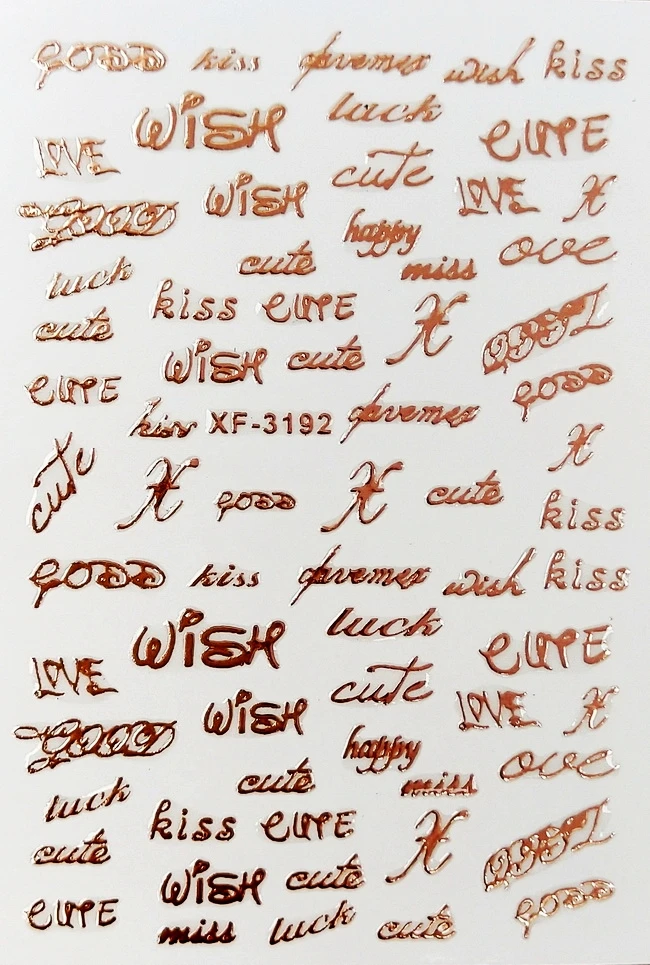 GOOD kiss wish kiss
WISH luck CUTE
LOVE cute
WISH LOVE X
GOOD happy ove
cute miss
luck kiss CUTE X
cute
WISH cute
CUTE GOOD
kiss XF-3192
cute X
X GOOD X cute kiss
GOOD kiss wish kiss
WISH luck CUTE
LOVE cute
WISH LOVE X
GOOD happy ove
cute miss
luck kiss CUTE X
cute
WISH cute
CUTE GOOD
miss luck cute